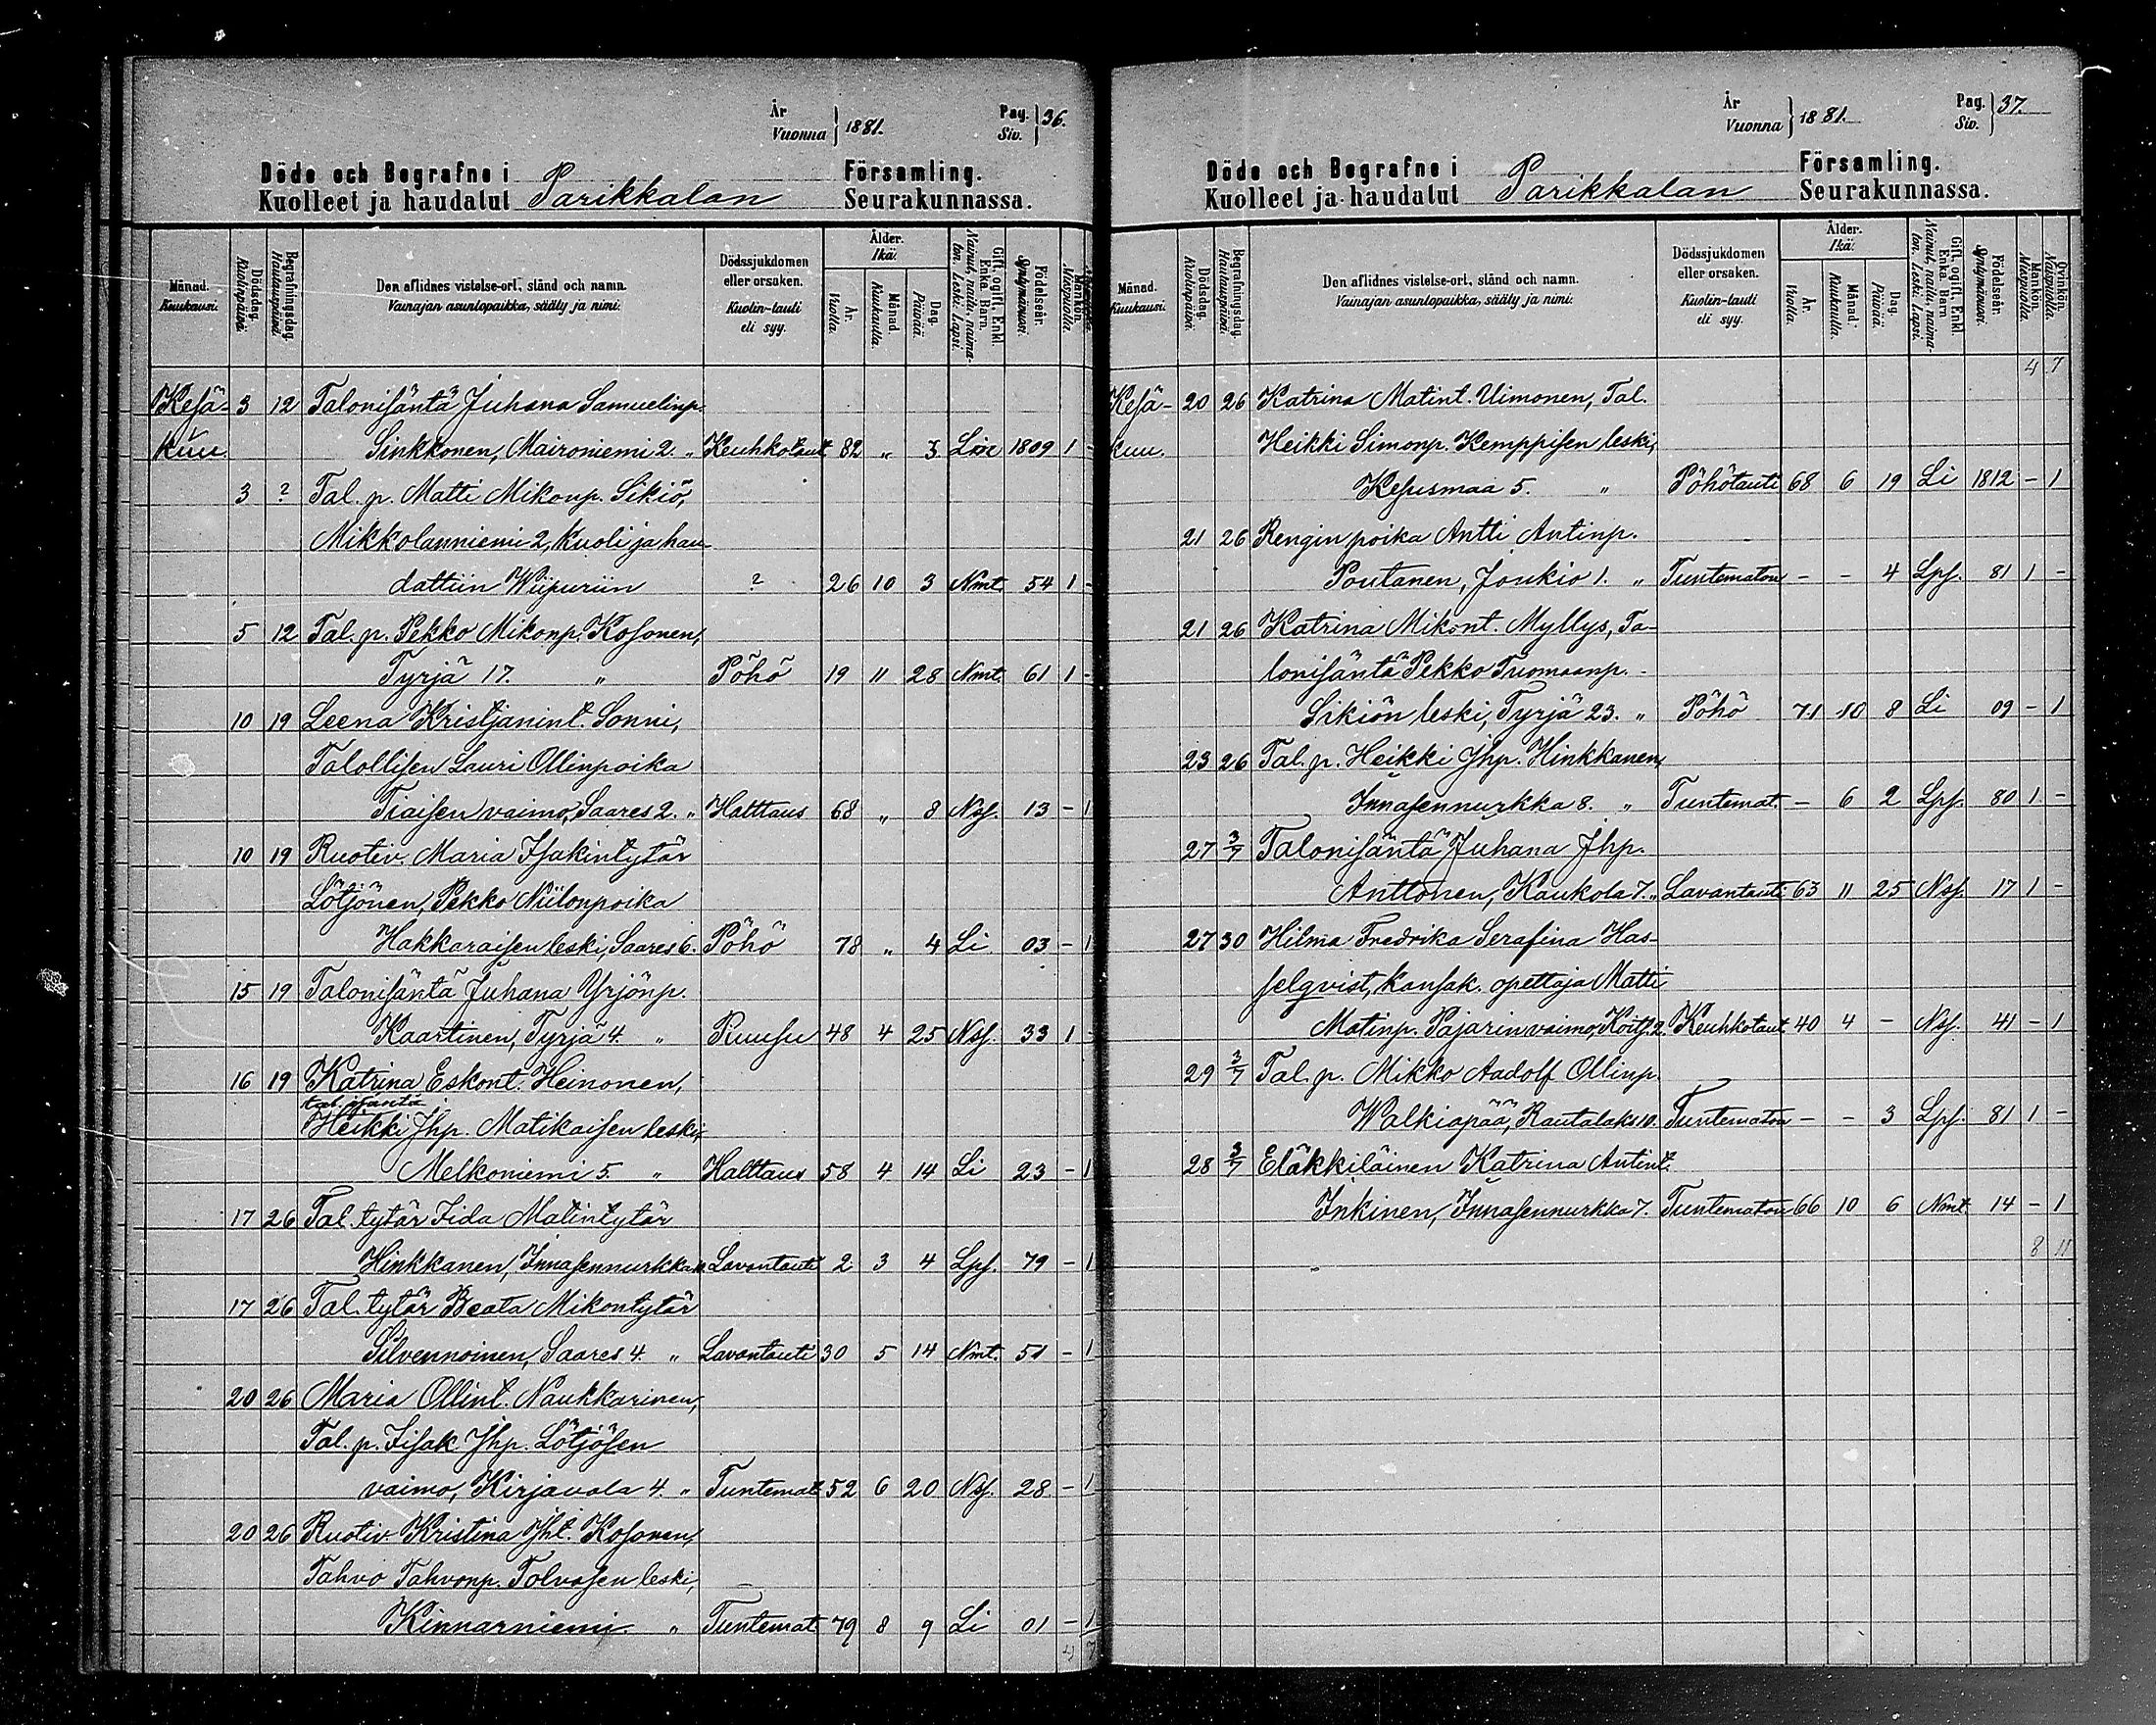 År
Vuonna } 1881.
Pag.
Siv. } 36.
Döde och Begrafne i
Kuolleet ja haudatut Parikkalan
Församling.
Seurakunnassa.
Månad.
Kuukausi.
Dödsdag.
Kuolinpäivä.
Begrafningsdag.
Hautauspäivä.
Den aflidnes vistelse-ort, stånd och namn.
Vainajan asuntopaikka, sääty ja nimi.
Dödssjukdomen
eller orsaken.
Kuolin-tauti
eli syy.
Ålder.
Ikä.
År.
Vuotta.
Månad.
Kuukautta.
Dag.
Päivää.
Gift, ogift, Enkl.
Enka. Barn.
Nainut, naitu, naima-
ton. Leski. Lapsi.
Födelseår.
Syntymävuosi.
Mankön.
Miespuolia.
Kesä- 3 12 Talonisäntä Juhana Samuelinp.
kuu. Sinkkonen, Maironiemi 2. „ Keuhkotaut 82 „ 3 1809 1 -
3 ? Tal. p. Matti Mikonp. Sikiö,
Mikkolanniemi 2, kuoli ja hau-
dattiin Wiipuriin ? 26 10 3 Nmt. 54 1 -
5 12 Tal. p. Pekko Mikonp. Kosonen,
Tyrjä 17. „ Pöhö 19 11 28 Nmt. 61 1 -
10 19 Leena Kristjanint. Sonni,
Talollisen Lauri Ollinpoika
Tiaisen vaimo, Saares 2. „ Halttaus 68 „ 8 Nsf. 13 - 1
10 19 Ruotiv. Maria Isakintytär
Lötjönen, Pekko Niilonpoika
Hakkaraisen leski, Saares 6. Pöhö 78 „ 4 Li. 03 - 1
15 19 Talonisäntä Juhana Yrjönp.
Kaartinen, Tyrjä 4. „ Ruusu 48 4 25 Nsf. 33 1 -
16 19 Katrina Eskont. Heinonen,
tal. isäntä
Heikki Jhp. Matikaisen leski,
Melkoniemi 5. „ Halttaus 58 4 14 Li 23 - 1
17 26 Tal. tytär Iida Matintytär
Hinkkanen, Innasennurkka Lavantauti 2 3 4 Lps. 79 - 1
17 26 Tal. tytär Beata Mikontytär
Silvennoinen, Saares 4. „ Lavantauti 30 5 14 Nmt. 51 - 1
20 26 Maria Ollint. Naukkarinen,
Tal. p. Iisak Jhp. Lötjösen
vaimo, Kirjavala 4. „ Tuntemat 52 6 20 Nsf. 28 - 1
20 26 Ruotiv. Kristina Jht. Kosonen,
Tahvo Tahvonp. Tolvasen leski,
Kinnarniemi. „ Tuntemat 79 8 9 Li 01 - 1
4 7
År
Vuonna } 1881.
Pag.
Siv. } 37.
Döde och Begrafne i
Kuolleet ja haudatut Parikkalan
Församling.
Seurakunnassa.
Månad.
Kuukausi.
Dödsdag.
Kuolinpäivä.
Begrafningsdag.
Hautauspäivä.
Den aflidnes vistelse-ort, stånd och namn.
Vainajan asuntopaikka, sääty ja nimi.
Dödssjukdomen
eller orsaken.
Kuolin-tauti
eli syy.
Ålder.
Ikä.
År.
Vuotta.
Månad.
Kuukautta.
Dag.
Päivää.
Gift, ogift, Enkl.
Enka. Barn
Nainut, naitu, naima-
ton. Leski. Lapsi.
Födelseår.
Syntymävuosi.
Mankön.
Miespuolia.
Qvinkön.
Naispuolia.
4 7
Kesä- 20 26 Katrina Matint. Uimonen, Tal.
kuu. Heikki Simonp. Kemppisen leski,
Kesusmaa 5. „ Pöhötauti 68 6 19 Li 1812 - 1
21 26 Rengin poika Antti Antinp.
Poutanen, Joukio 1. „ Tuntematon - - 4 Lps. 81 1 -
21 26 Katrina Mikont. Myllys, Ta-
lonisäntä Pekko Tuomaanp.
Sikiön leski, Tyrjä 23. „ Pöhö 71 10 8 Li 09 - 1
23 26 Tal. p. Heikki Jhp. Hinkkanen,
Innasennurkka 8. „ Tuntemat. - 6 2 Lps. 80 1 -
27 3/7 Talonisäntä Juhana Jhp.
Anttonen, Kaukola 7. „ Lavantauti 63 11 25 Nsf. 17 1 -
27 30 Hilma Fredrika Serafina Has-
selqvist, kansak. opettaja Matti
Matinp. Pajarin vaimo, Koits. 2. Keuhkotaut 40 4 - Nsf. 41 - 1
29 3/7 Tal. p. Mikko Aadolf Ollinp.
Walkiapää, Rautalaks 10. Tuntematon - - 3 Lps. 81 1 -
28 3/7 Eläkkiläinen Katrina Antint.
Inkinen, Innasennurkka 7. Tuntematon 66 10 6 Nmt 14 - 1
8 11